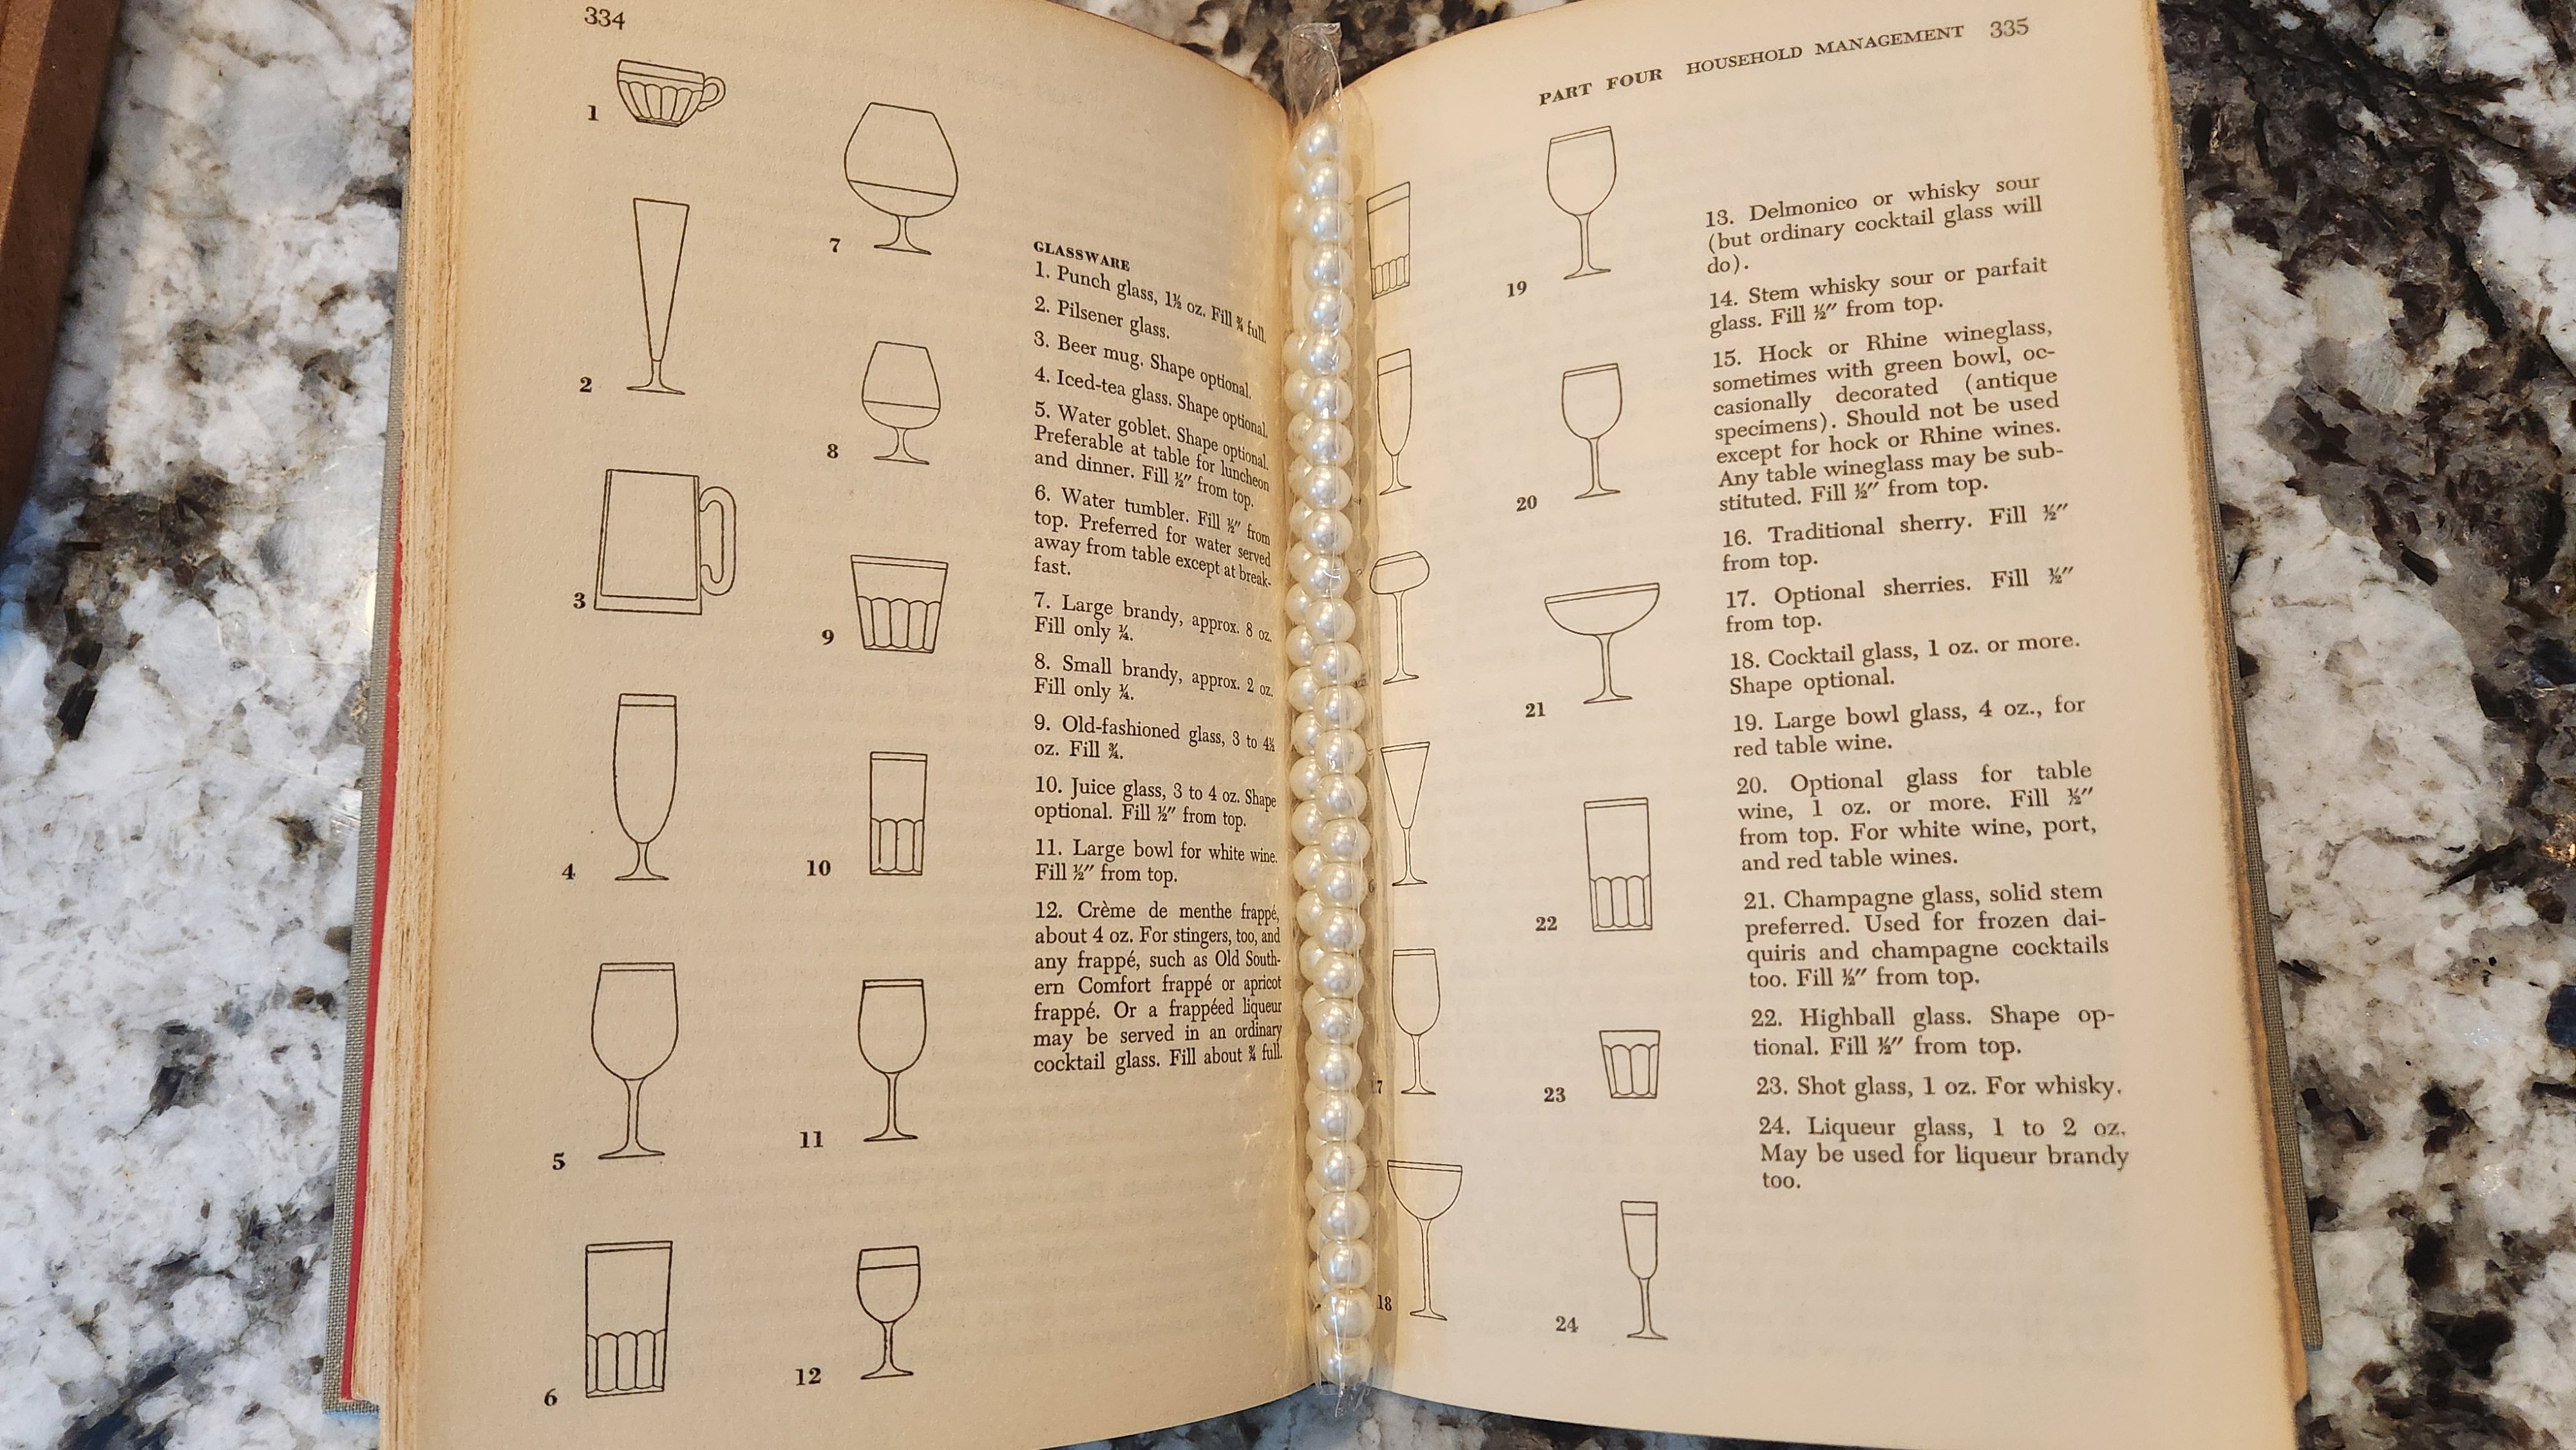 334
1
2
3
4
5
6
7
8
9
10
11
12
GLASSWARE
1. Punch glass, 1½ oz. Fill ¾ full.
2. Pilsener glass.
3. Beer mug. Shape optional.
4. Iced-tea glass. Shape optional.
5. Water goblet. Shape optional.
Preferable at table for luncheon
and dinner. Fill ½″ from top.
6. Water tumbler. Fill ½″ from
top. Preferred for water served
away from table except at break-
fast.
7. Large brandy, approx. 8 oz.
Fill only ¼.
8. Small brandy, approx. 2 oz.
Fill only ¼.
9. Old-fashioned glass, 3 to 4½
oz. Fill ¾.
10. Juice glass, 3 to 4 oz. Shape
optional. Fill ½″ from top.
11. Large bowl for white wine.
Fill ½″ from top.
12. Crème de menthe frappé,
about 4 oz. For stingers, too, and
any frappé, such as Old South-
ern Comfort frappé or apricot
frappé. Or a frappéed liqueur
may be served in an ordinary
cocktail glass. Fill about ¾ full.
PART FOUR HOUSEHOLD MANAGEMENT 335
7
18
19
20
21
22
23
24
13. Delmonico or whisky sour
(but ordinary cocktail glass will
do).
14. Stem whisky sour or parfait
glass. Fill ½″ from top.
15. Hock or Rhine wineglass,
sometimes with green bowl, oc-
casionally decorated (antique
specimens). Should not be used
except for hock or Rhine wines.
Any table wineglass may be sub-
stituted. Fill ½″ from top.
16. Traditional sherry. Fill ½″
from top.
17. Optional sherries. Fill ½″
from top.
18. Cocktail glass, 1 oz. or more.
Shape optional.
19. Large bowl glass, 4 oz., for
red table wine.
20. Optional glass for table
wine, 1 oz. or more. Fill ½″
from top. For white wine, port,
and red table wines.
21. Champagne glass, solid stem
preferred. Used for frozen dai-
quiris and champagne cocktails
too. Fill ½″ from top.
22. Highball glass. Shape op-
tional. Fill ½″ from top.
23. Shot glass, 1 oz. For whisky.
24. Liqueur glass, 1 to 2 oz.
May be used for liqueur brandy
too.